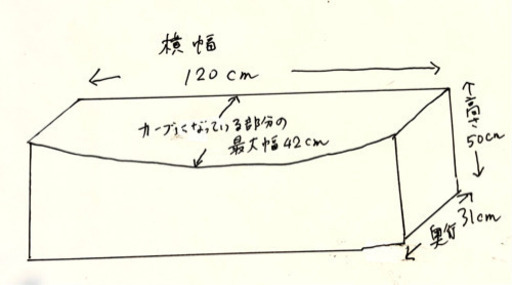 横幅
120cm
カーブになっている部分の
最大幅42cm
高さ
50cm
31cm
奥行